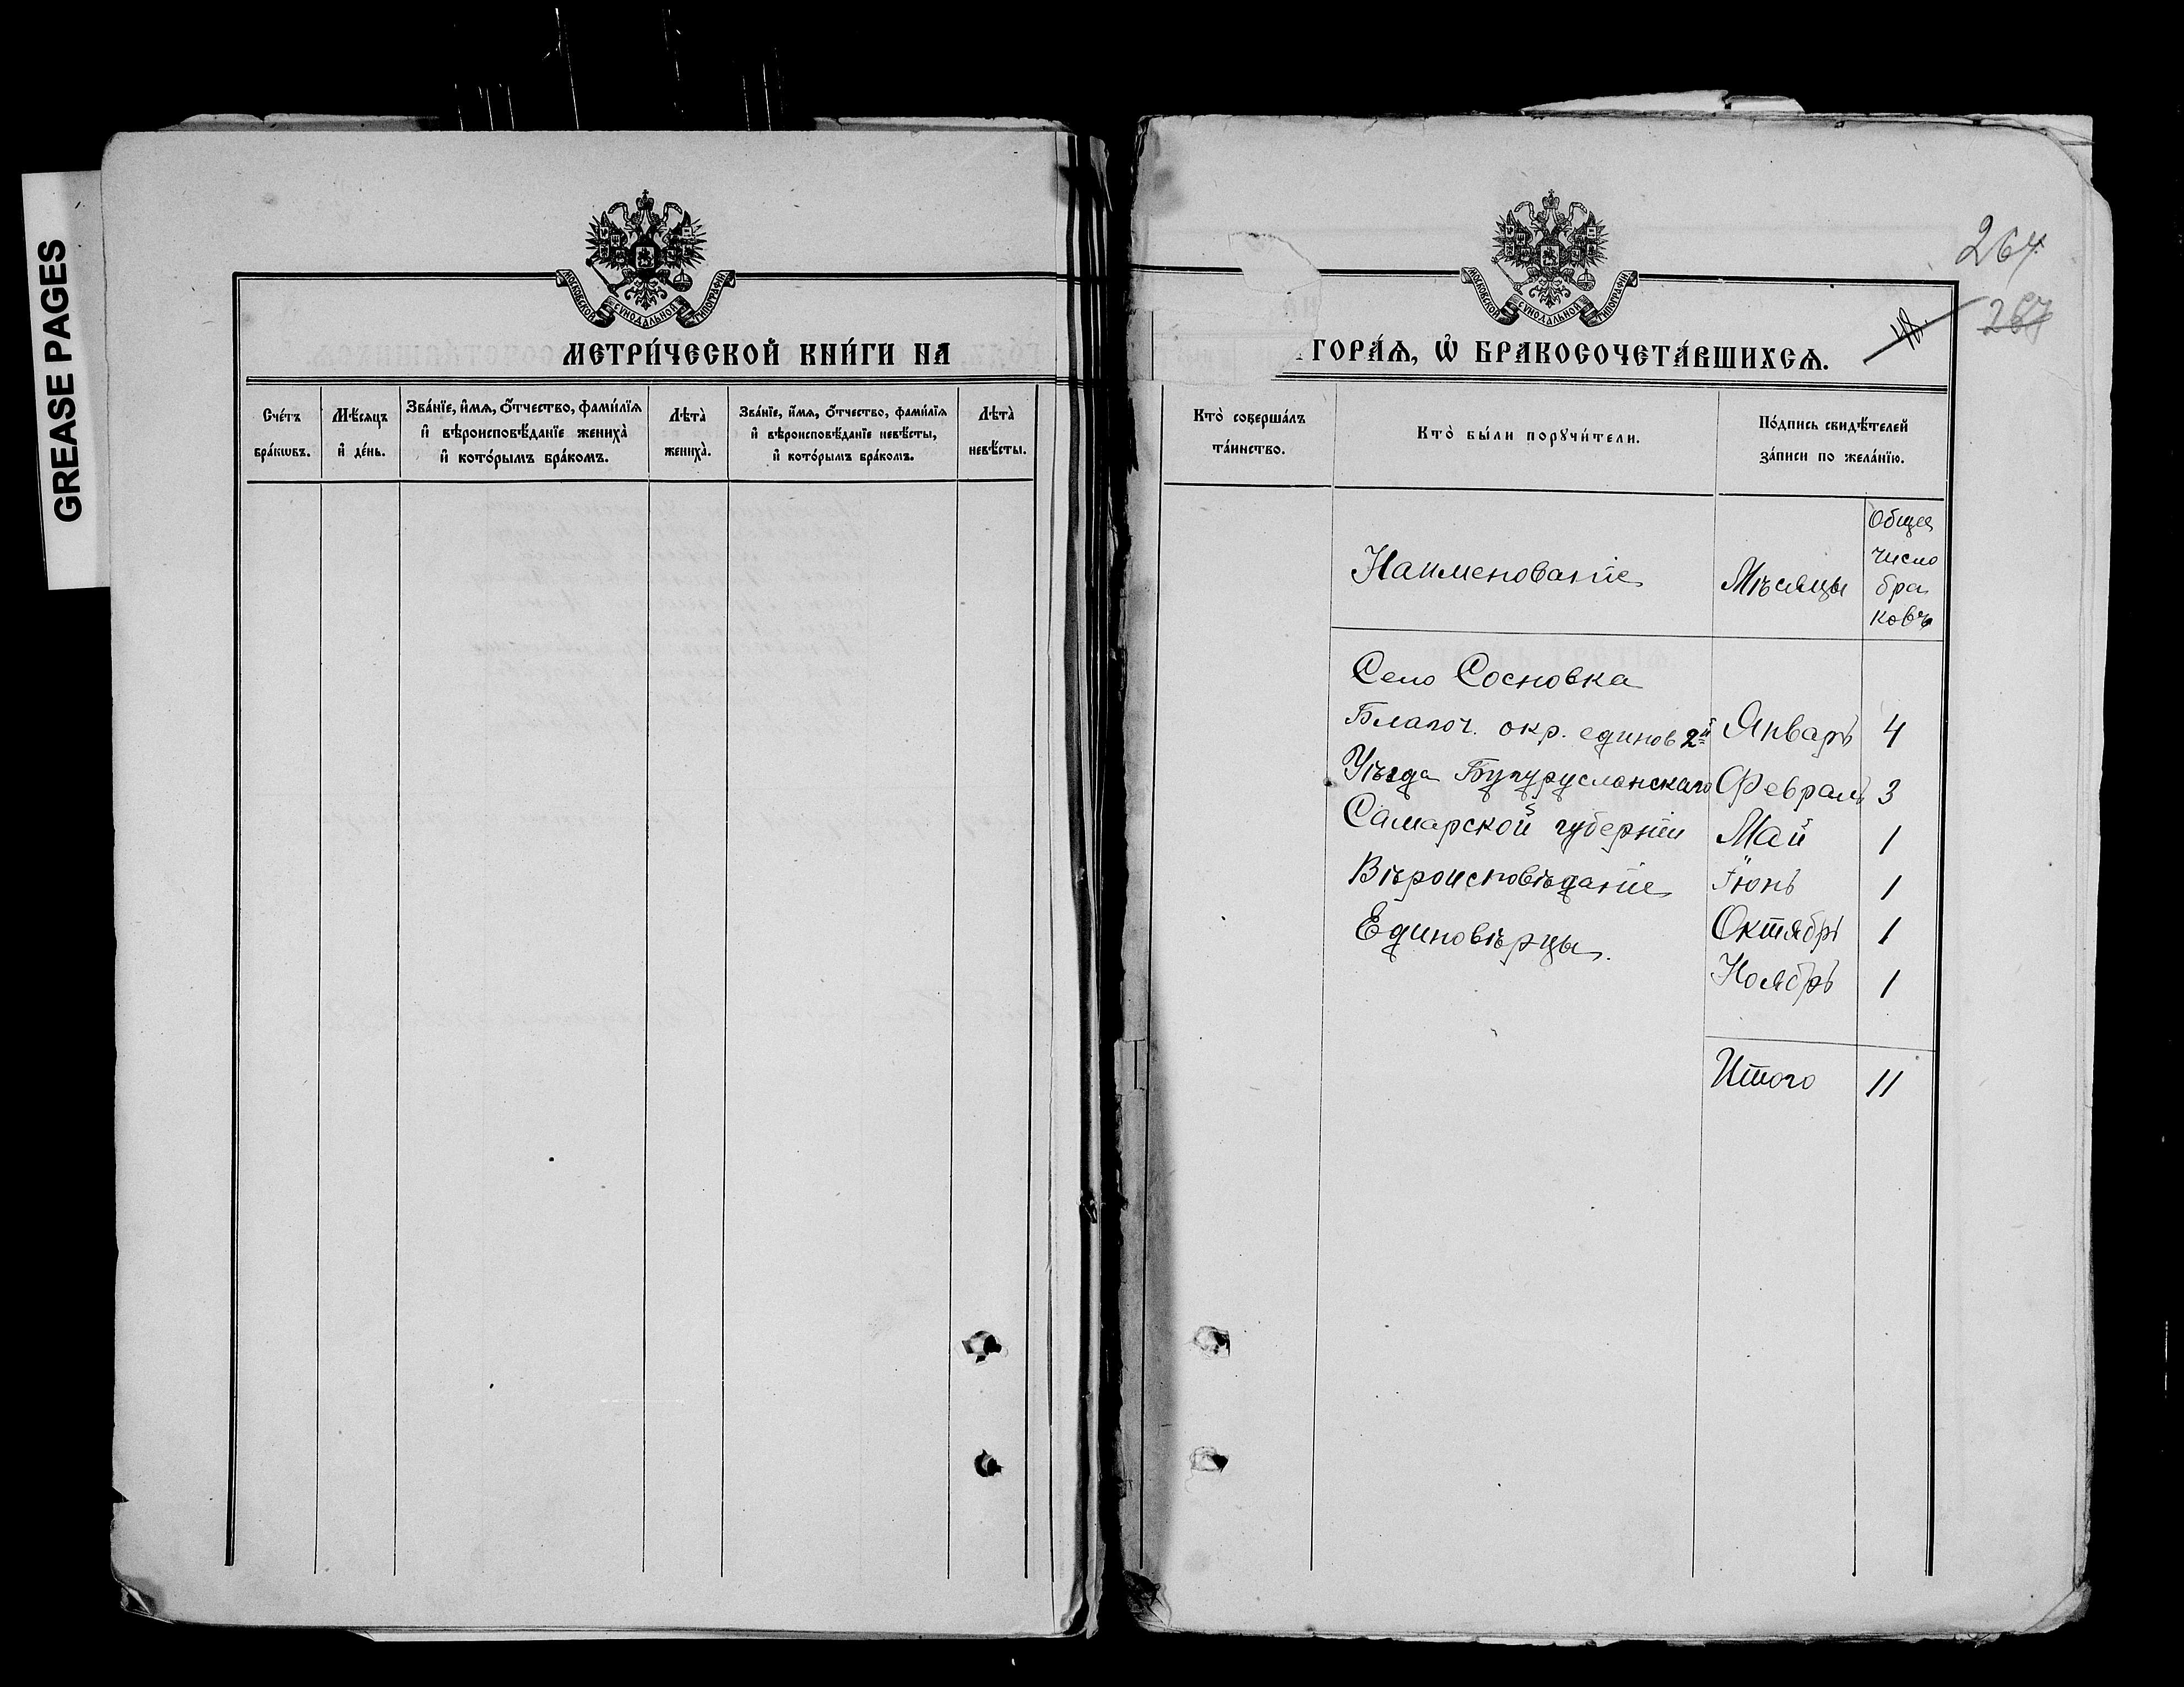 GREASE PAGES
МОСКОВСКОЙ СУНОДАЛЬНОЙ ТИПОГРАФІИ
МЕТРИ́ЧЕСКОЙ КНИ́ГИ НА
Сче́тъ бра́кѡвъ.
Мѣ́сяцъ и҆ де́нь.
Зва́нїе, и҆́мѧ, ѻ҆́тчество, фами́лїѧ
и҆ вѣроисповѣ́данїе жениха̀
и҆ кото́рымъ бра́комъ.
Лѣта̀ жениха̀.
Зва́нїе, и҆́мѧ, ѻ҆́тчество, фами́лїѧ
и҆ вѣроисповѣ́данїе невѣ́сты,
и҆ кото́рымъ бра́комъ.
Лѣта̀ невѣ́сты.
264
267
48.
МОСКОВСКОЙ СУНОДАЛЬНОЙ ТИПОГРАФІИ
ТОРА́Ѧ, Ѡ҆ БРАКОСОЧЕТА́ВШИХСѦ.
Кто̀ соверша́лъ
та́инство.
Кто̀ бы́ли порꙋчи́тели.
По́дпись свидѣ́телей
за́писи по жела́нїю.
Наименованіе
Мѣсяцы
Общее
число
бра
ковъ
Село Сосновка
Благоч. окр. единов 2й Январь 4
Уѣзда Бугурусланскаго Февраль 3
Самарской губерніи Май 1
Вѣроисповѣданіе Іюнь 1
Единовѣрцы. Октябрь 1
Ноябрь 1
Итого 11